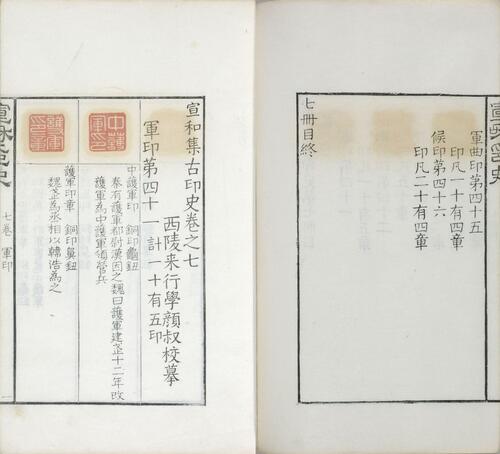 軍曲印第四十五
印凡一十有四章
候印第四十六
印凡二十有四章
七冊目終
宣和集古印史卷之七
西陵来行學顔叔校摹
軍印第四十一計一十有五印
中護軍印 銅印龜鈕
秦有護軍都尉漢因之魏曰護軍建安十二年改
護軍為中護軍領營兵
護軍印章 銅印鼻鈕
魏武為丞相以韓浩為之
七卷 軍印
一